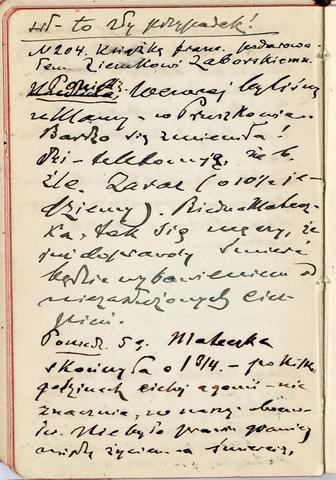 to zły przypadek!
N 204. Książkę franc. podarowa-
łem Ziemkowi Zaborskiemu.
Wczoraj byliśmy
u Mamy - w Pruszkowie.
Bardzo się zmieniła!
Dziś telefonują, że b.
źle. Zaraz (o 10½ je-
dziemy). Biedna Matecz-
ka, tak się męczy, że
już doprawdy śmierć
będzie wybawieniem od
niezasłużonych cier-
pień.
Poniedz. 5 g. Mateczka
skończyła o 1 3/4. - po kilku
godzinach cichej agonii - nie
znacznie, w naszej obecno-
ści. Nie było prawie granicy
między życiem a śmiercią,